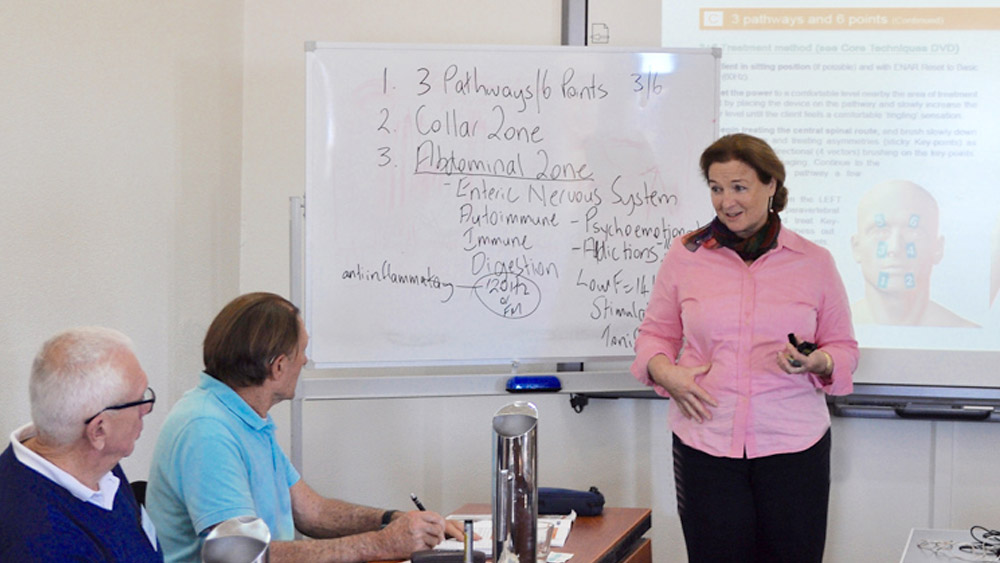 1. 3 Pathways/6 Points 3/6
2. Collar Zone
3. Abdominal Zone
- Enteric Nervous System
Autoimmune - Psychoemotional
Immune - Addictions
Digestion
antiinflammatory
120Hz
or
FM
Low F = 14
C 3 pathways and 6 points (Continued)
Treatment method (see Core Techniques DVD)
in sitting position (if possible) and with ENAR Reset to Basic
the power to a comfortable level nearby the area of treatment
by placing the device on the pathway and slowly increase the
level until the client feels a comfortable 'tingling' sensation.
treating the central spinal route, and brush slowly down
and treating asymmetries (sticky Key-points) so
(4 vectors) brushing on the key-points
Continue to the
pathway a line
on the LEFT
paravertebral
treat Key-
2 2
3 3
1 2